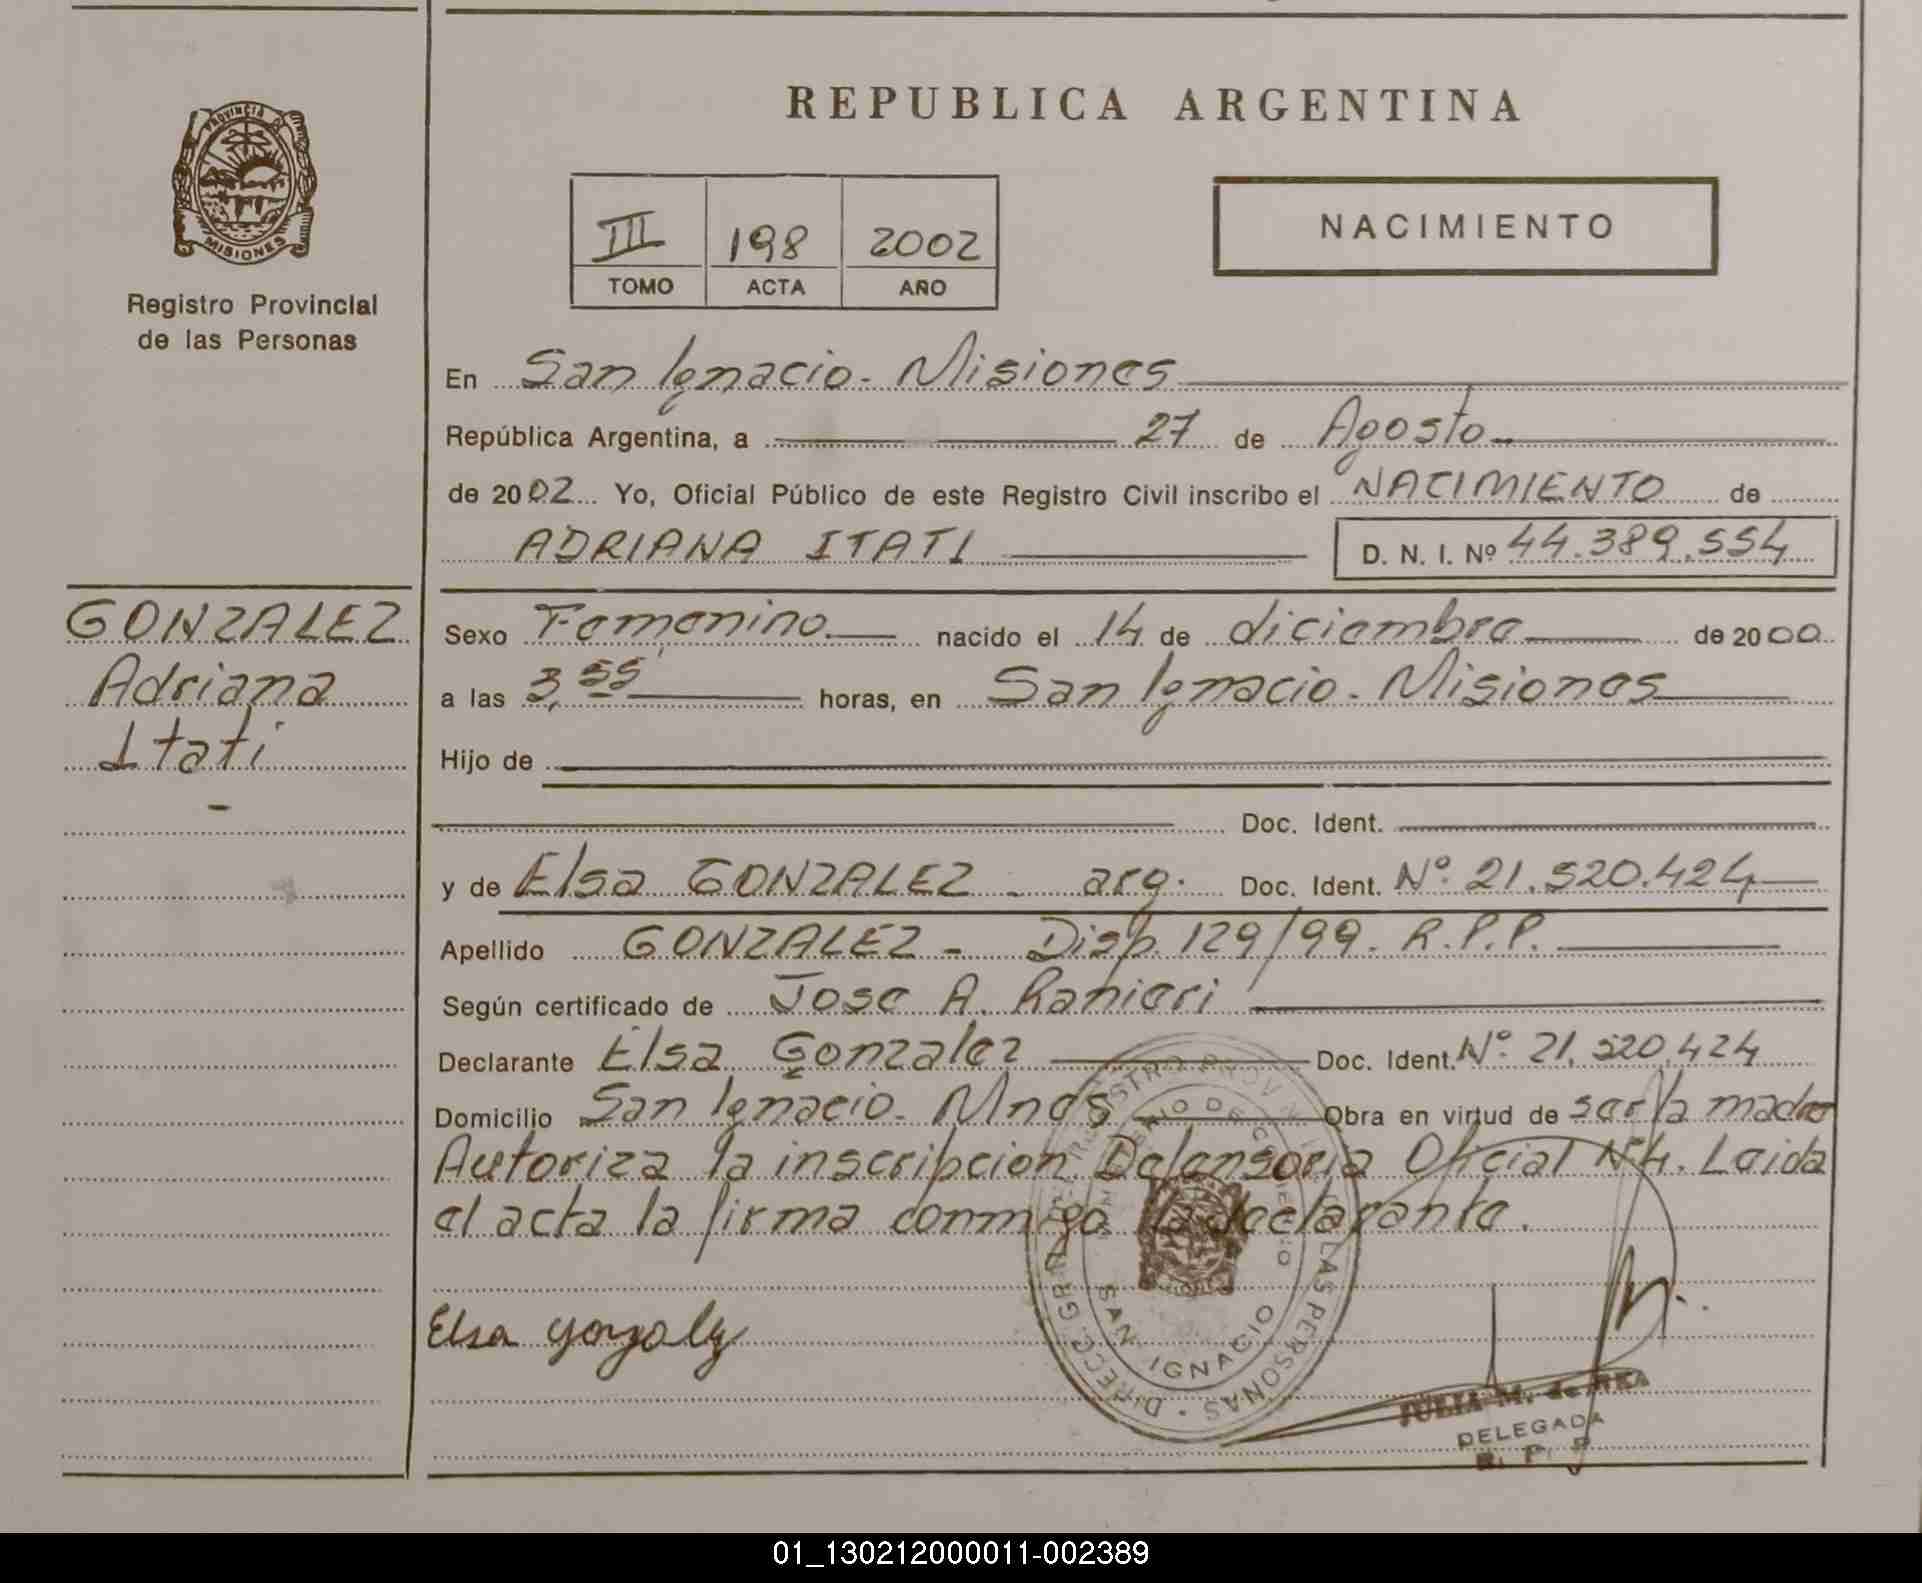 REPUBLICA ARGENTINA
PROVINCIA DE
MISIONES
Registro Provincial
de las Personas
III 198 2002
TOMO ACTA AÑO
NACIMIENTO
En San Ignacio - Misiones
República Argentina, a 27 de Agosto
de 2002 Yo, Oficial Público de este Registro Civil inscribo el NACIMIENTO de
ADRIANA ITATI D. N. I. Nº 44.389.554
GONZALEZ
Adriana
Itati
Sexo Femenino nacido el 14 de diciembre de 2000
a las 3,55' horas, en San Ignacio - Misiones
Hijo de
Doc. Ident.
y de Elsa GONZALEZ - arg. Doc. Ident. Nº 21.520.424
Apellido GONZALEZ - Disp. 129/99. R.P.P.
Según certificado de Jose A. Ranieri
Declarante Elsa Gonzalez Doc. Ident. Nº 21.520.424
Domicilio San Ignacio - Mnes Obra en virtud de ser la madre
Autoriza la inscripcion Defensoria Oficial Nº4. Leida
el acta la firma conmigo la declarante.
Elsa Gonzalez
SAN IGNACIO
LAS PERSONAS
JULIA M. de
DELEGADA
R. P. P.
01_130212000011-002389